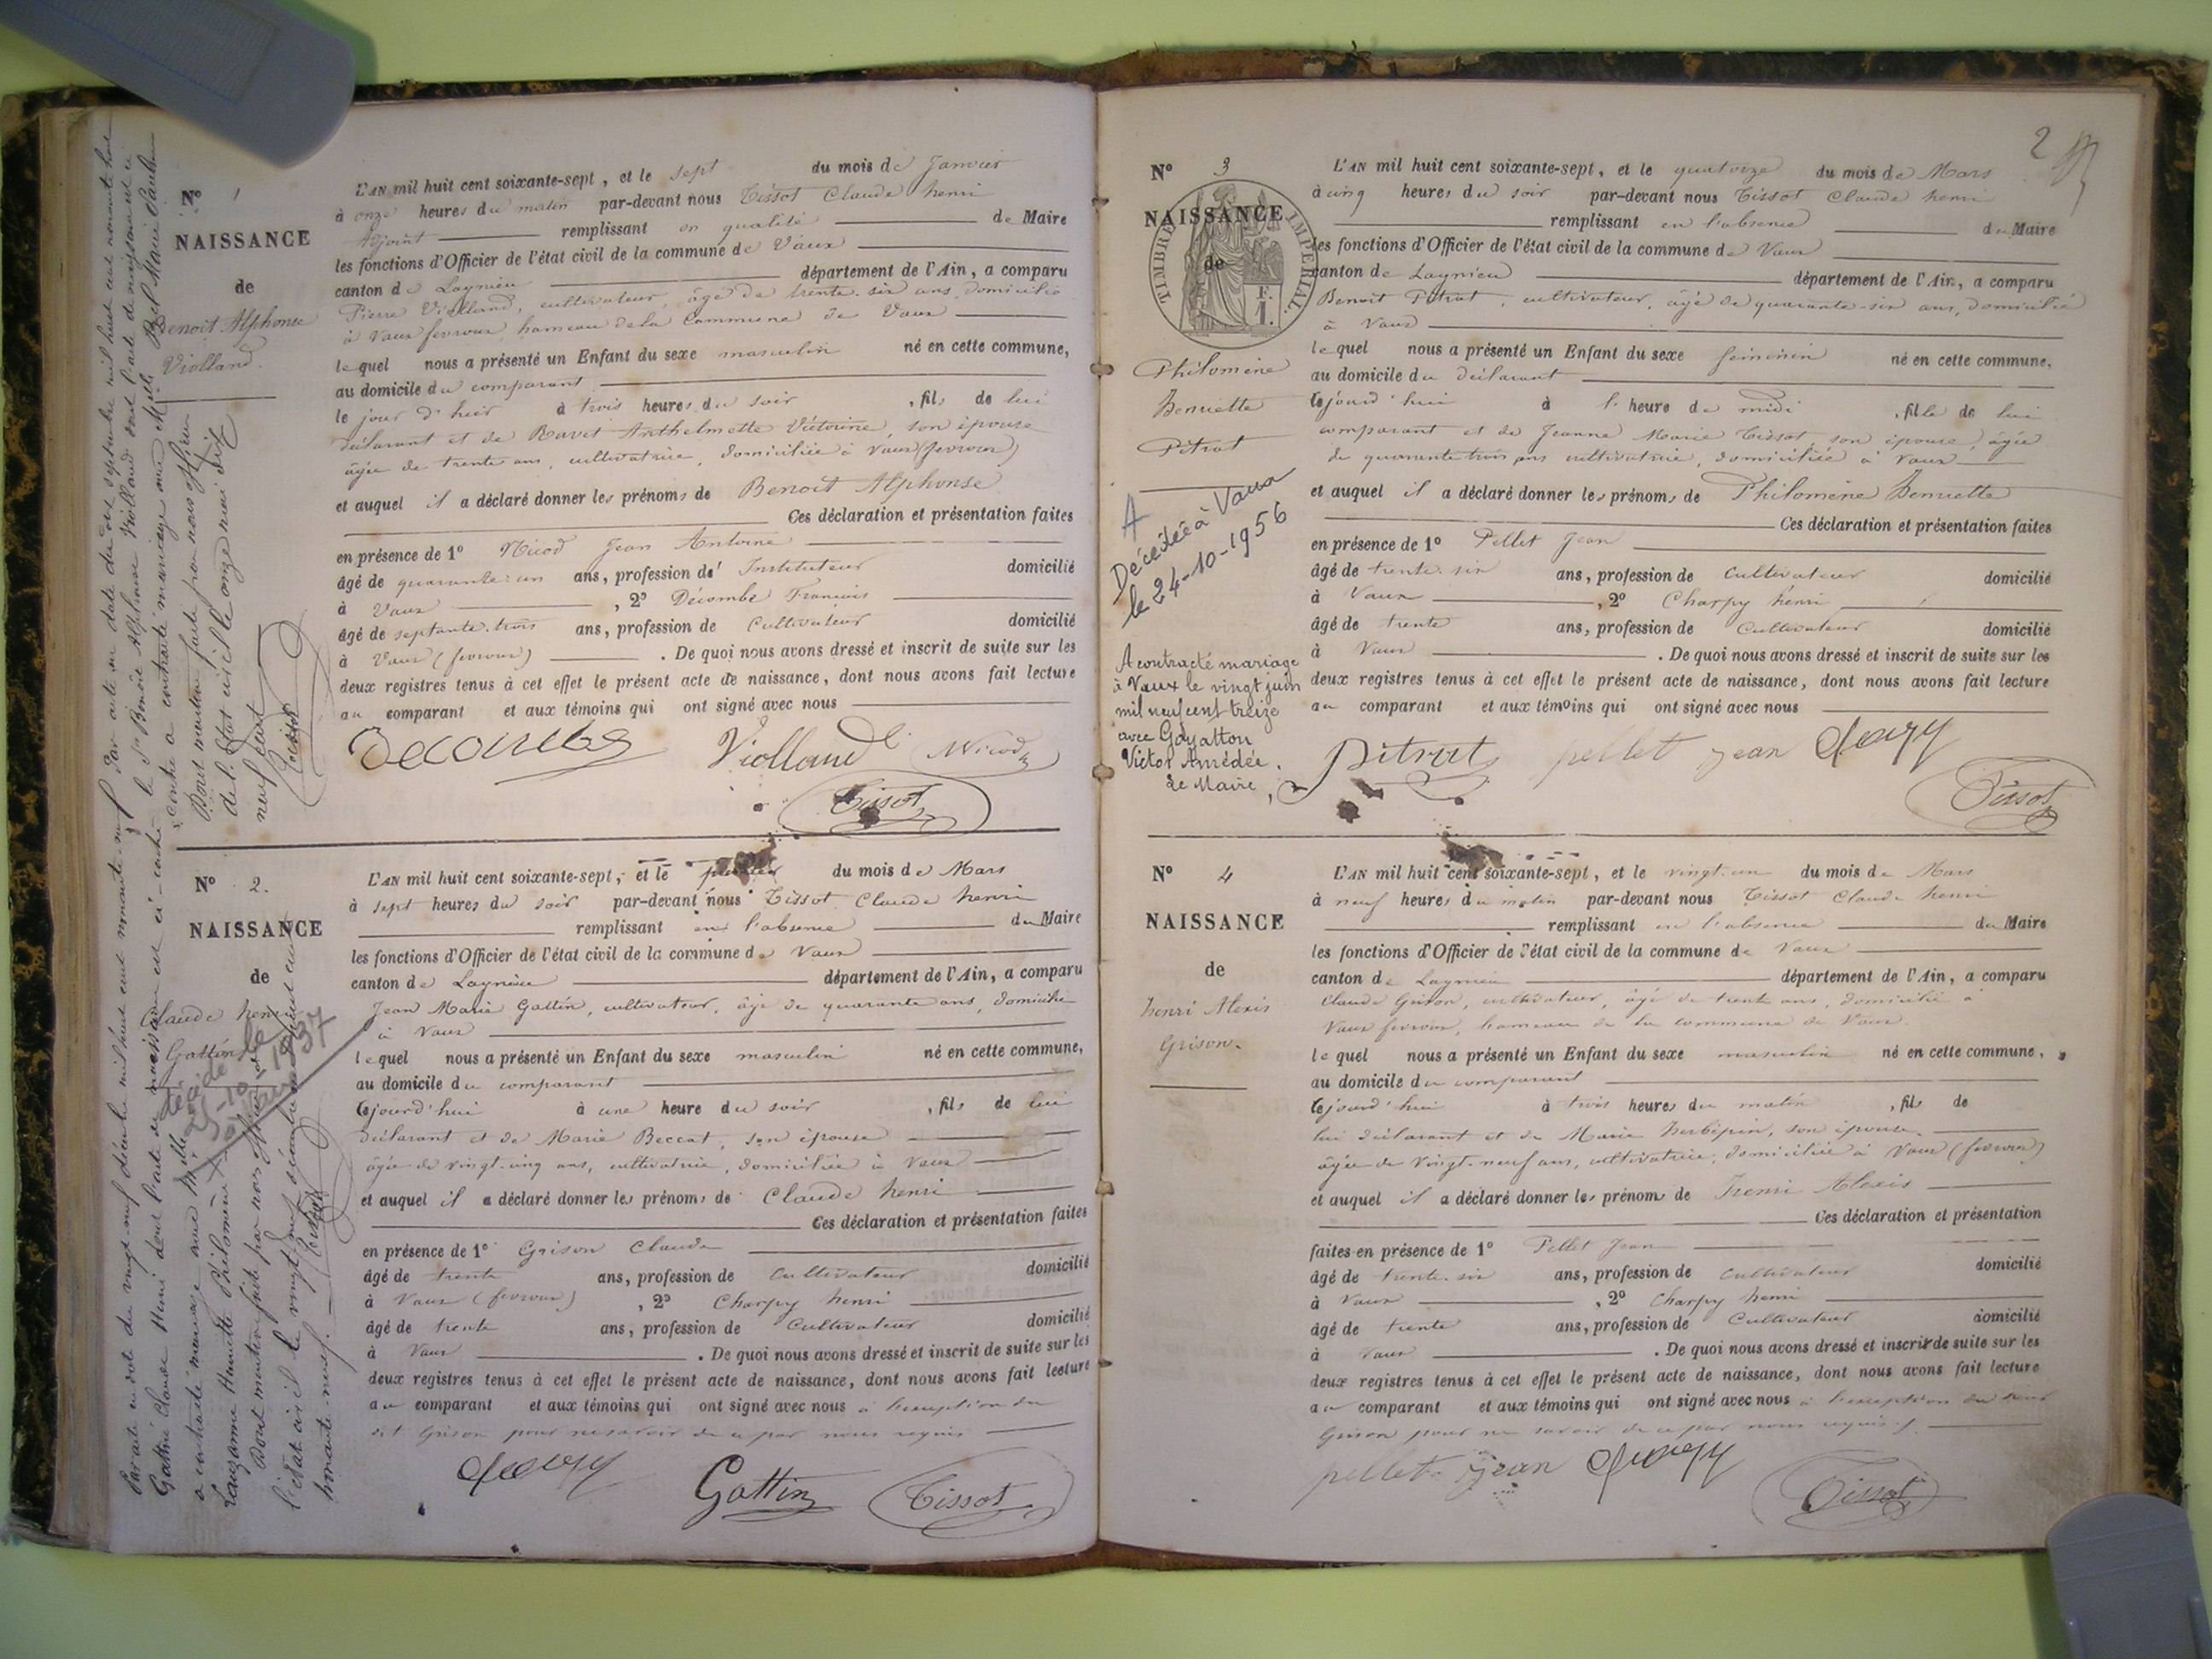 N° 1
NAISSANCE
de
Benoit Alphonse
Violland.
L'AN mil huit cent soixante-sept, et le sept du mois de Janvier
à onze heures du matin par-devant nous Tissot Claude henri
Adjoint remplissant en qualité de Maire
les fonctions d'Officier de l'état civil de la commune de Vaux
canton de Lagnieu département de l'Ain, a comparu
Pierre Violland, cultivateur, âgé de trente-six ans, domicilié
à Vaux fevroux, hameau de la Commune de Vaux
lequel nous a présenté un Enfant du sexe masculin né en cette commune,
au domicile du comparant
le jour d'hier à trois heures du soir, fils de lui
déclarant et de Ravet Anthelmette Victorine, son épouse
âgée de trente ans, cultivatrice, domiciliée à Vaux (fevroux)
et auquel il a déclaré donner les prénoms de Benoit Alphonse
Ces déclaration et présentation faites
en présence de 1° Nicod Jean Antoine
âgé de quarante-un ans, profession d' Instituteur domicilié
à Vaux, 2° Décombe François
âgé de septante-trois ans, profession de Cultivateur domicilié
à Vaux (fevroux). De quoi nous avons dressé et inscrit de suite sur les
deux registres tenus à cet effet le présent acte de naissance, dont nous avons fait lecture
au comparant et aux témoins qui ont signé avec nous
Decombe Violland Nicod
Tissot
N° 2.
NAISSANCE
de
Claude henri
Gattin
décédé le
L'AN mil huit cent soixante-sept, et le premier du mois de Mars
à sept heures du soir par-devant nous Tissot Claude henri
remplissant en l'absence du Maire
les fonctions d'Officier de l'état civil de la commune de Vaux
canton de Lagnieu département de l'Ain, a comparu
Jean Marie Gattin, cultivateur, âgé de quarante ans, domicilié
à Vaux
lequel nous a présenté un Enfant du sexe masculin né en cette commune,
au domicile du comparant
cejourd'hui à une heure du soir, fils de lui
déclarant et de Marie Beccat, son épouse
âgée de vingt-cinq ans, cultivatrice, domiciliée à Vaux
et auquel il a déclaré donner les prénoms de Claude henri
Ces déclaration et présentation faites
en présence de 1° Grison Claude
âgé de trente ans, profession de Cultivateur domicilié
à Vaux (fevroux), 2° Charpy henri
âgé de trente ans, profession de Cultivateur domicilié
à Vaux. De quoi nous avons dressé et inscrit de suite sur les
deux registres tenus à cet effet le présent acte de naissance, dont nous avons fait lecture
au comparant et aux témoins qui ont signé avec nous à l'exception du
dit Grison pour ne savoir de ce par nous requis
Charpy Gattin Tissot
2
N° 3
NAISSANCE
de
TIMBRE IMPERIAL.
F. 1.
Philomène
Henriette
Pitrat
A
Décédée à Vaux
le 24-10-1956
A contracté mariage
à Vaux le vingt juin
mil neuf cent treize
avec Goyatton
Victor Amédée.
Le Maire,
L'AN mil huit cent soixante-sept, et le quatorze du mois de Mars
à cinq heures du soir par-devant nous Tissot Claude henri
remplissant en l'absence du Maire
les fonctions d'Officier de l'état civil de la commune de Vaux
canton de Lagnieu département de l'Ain, a comparu
Benoit Pitrat, cultivateur, âgé de quarante-six ans, domicilié
à Vaux
lequel nous a présenté un Enfant du sexe féminin né en cette commune,
au domicile du déclarant
cejourd'hui à l' heure de midi, fille de lui
comparant et de Jeanne Marie Tissot, son épouse, âgée
de quarante trois ans cultivatrice, domiciliée à Vaux
et auquel il a déclaré donner les prénoms de Philomène Henriette
Ces déclaration et présentation faites
en présence de 1° Pellet Jean
âgé de trente-six ans, profession de Cultivateur domicilié
à Vaux, 2° Charpy henri
âgé de trente ans, profession de Cultivateur domicilié
à Vaux. De quoi nous avons dressé et inscrit de suite sur les
deux registres tenus à cet effet le présent acte de naissance, dont nous avons fait lecture
au comparant et aux témoins qui ont signé avec nous
Pitrat pellet jean Charpy
Tissot
N° 4
NAISSANCE
de
henri Alexis
Grison.
L'AN mil huit cent soixante-sept, et le vingt-un du mois de Mars
à neuf heures du matin par-devant nous Tissot Claude henri
remplissant en l'absence du Maire
les fonctions d'Officier de l'état civil de la commune de Vaux
canton de Lagnieu département de l'Ain, a comparu
Claude Grison, cultivateur, âgé de trente ans, domicilié à
Vaux fevroux, hameau de la commune de Vaux.
lequel nous a présenté un Enfant du sexe masculin né en cette commune,
au domicile du comparant
cejourd'hui à trois heures du matin, fils de
lui déclarant et de Marie Herbépin, son épouse
âgée de vingt-neuf ans, cultivatrice, domiciliée à Vaux (fevroux)
et auquel il a déclaré donner les prénoms de henri Alexis
Ces déclaration et présentation
faites en présence de 1° Pellet Jean
âgé de trente-six ans, profession de Cultivateur domicilié
à Vaux, 2° Charpy henri
âgé de trente ans, profession de Cultivateur domicilié
à Vaux. De quoi nous avons dressé et inscrit de suite sur les
deux registres tenus à cet effet le présent acte de naissance, dont nous avons fait lecture
au comparant et aux témoins qui ont signé avec nous à l'exception du
Grison pour ne savoir de ce par nous requis
pellet jean Charpy
Tissot